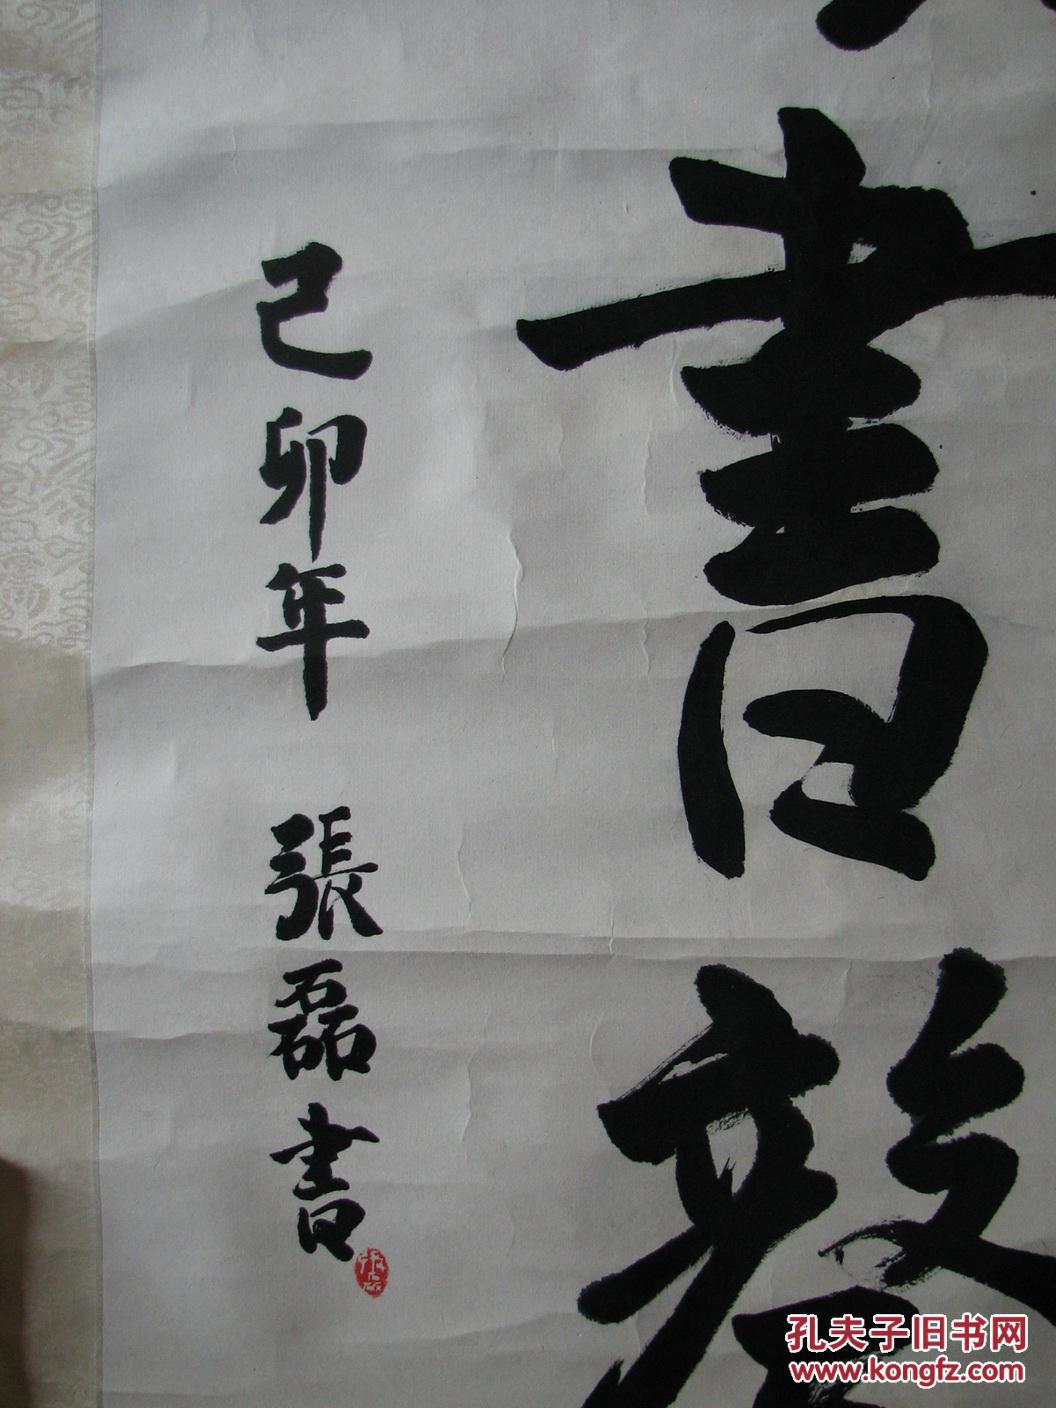 書
己卯年 張磊書
孔夫子旧书网
www.kongfz.com